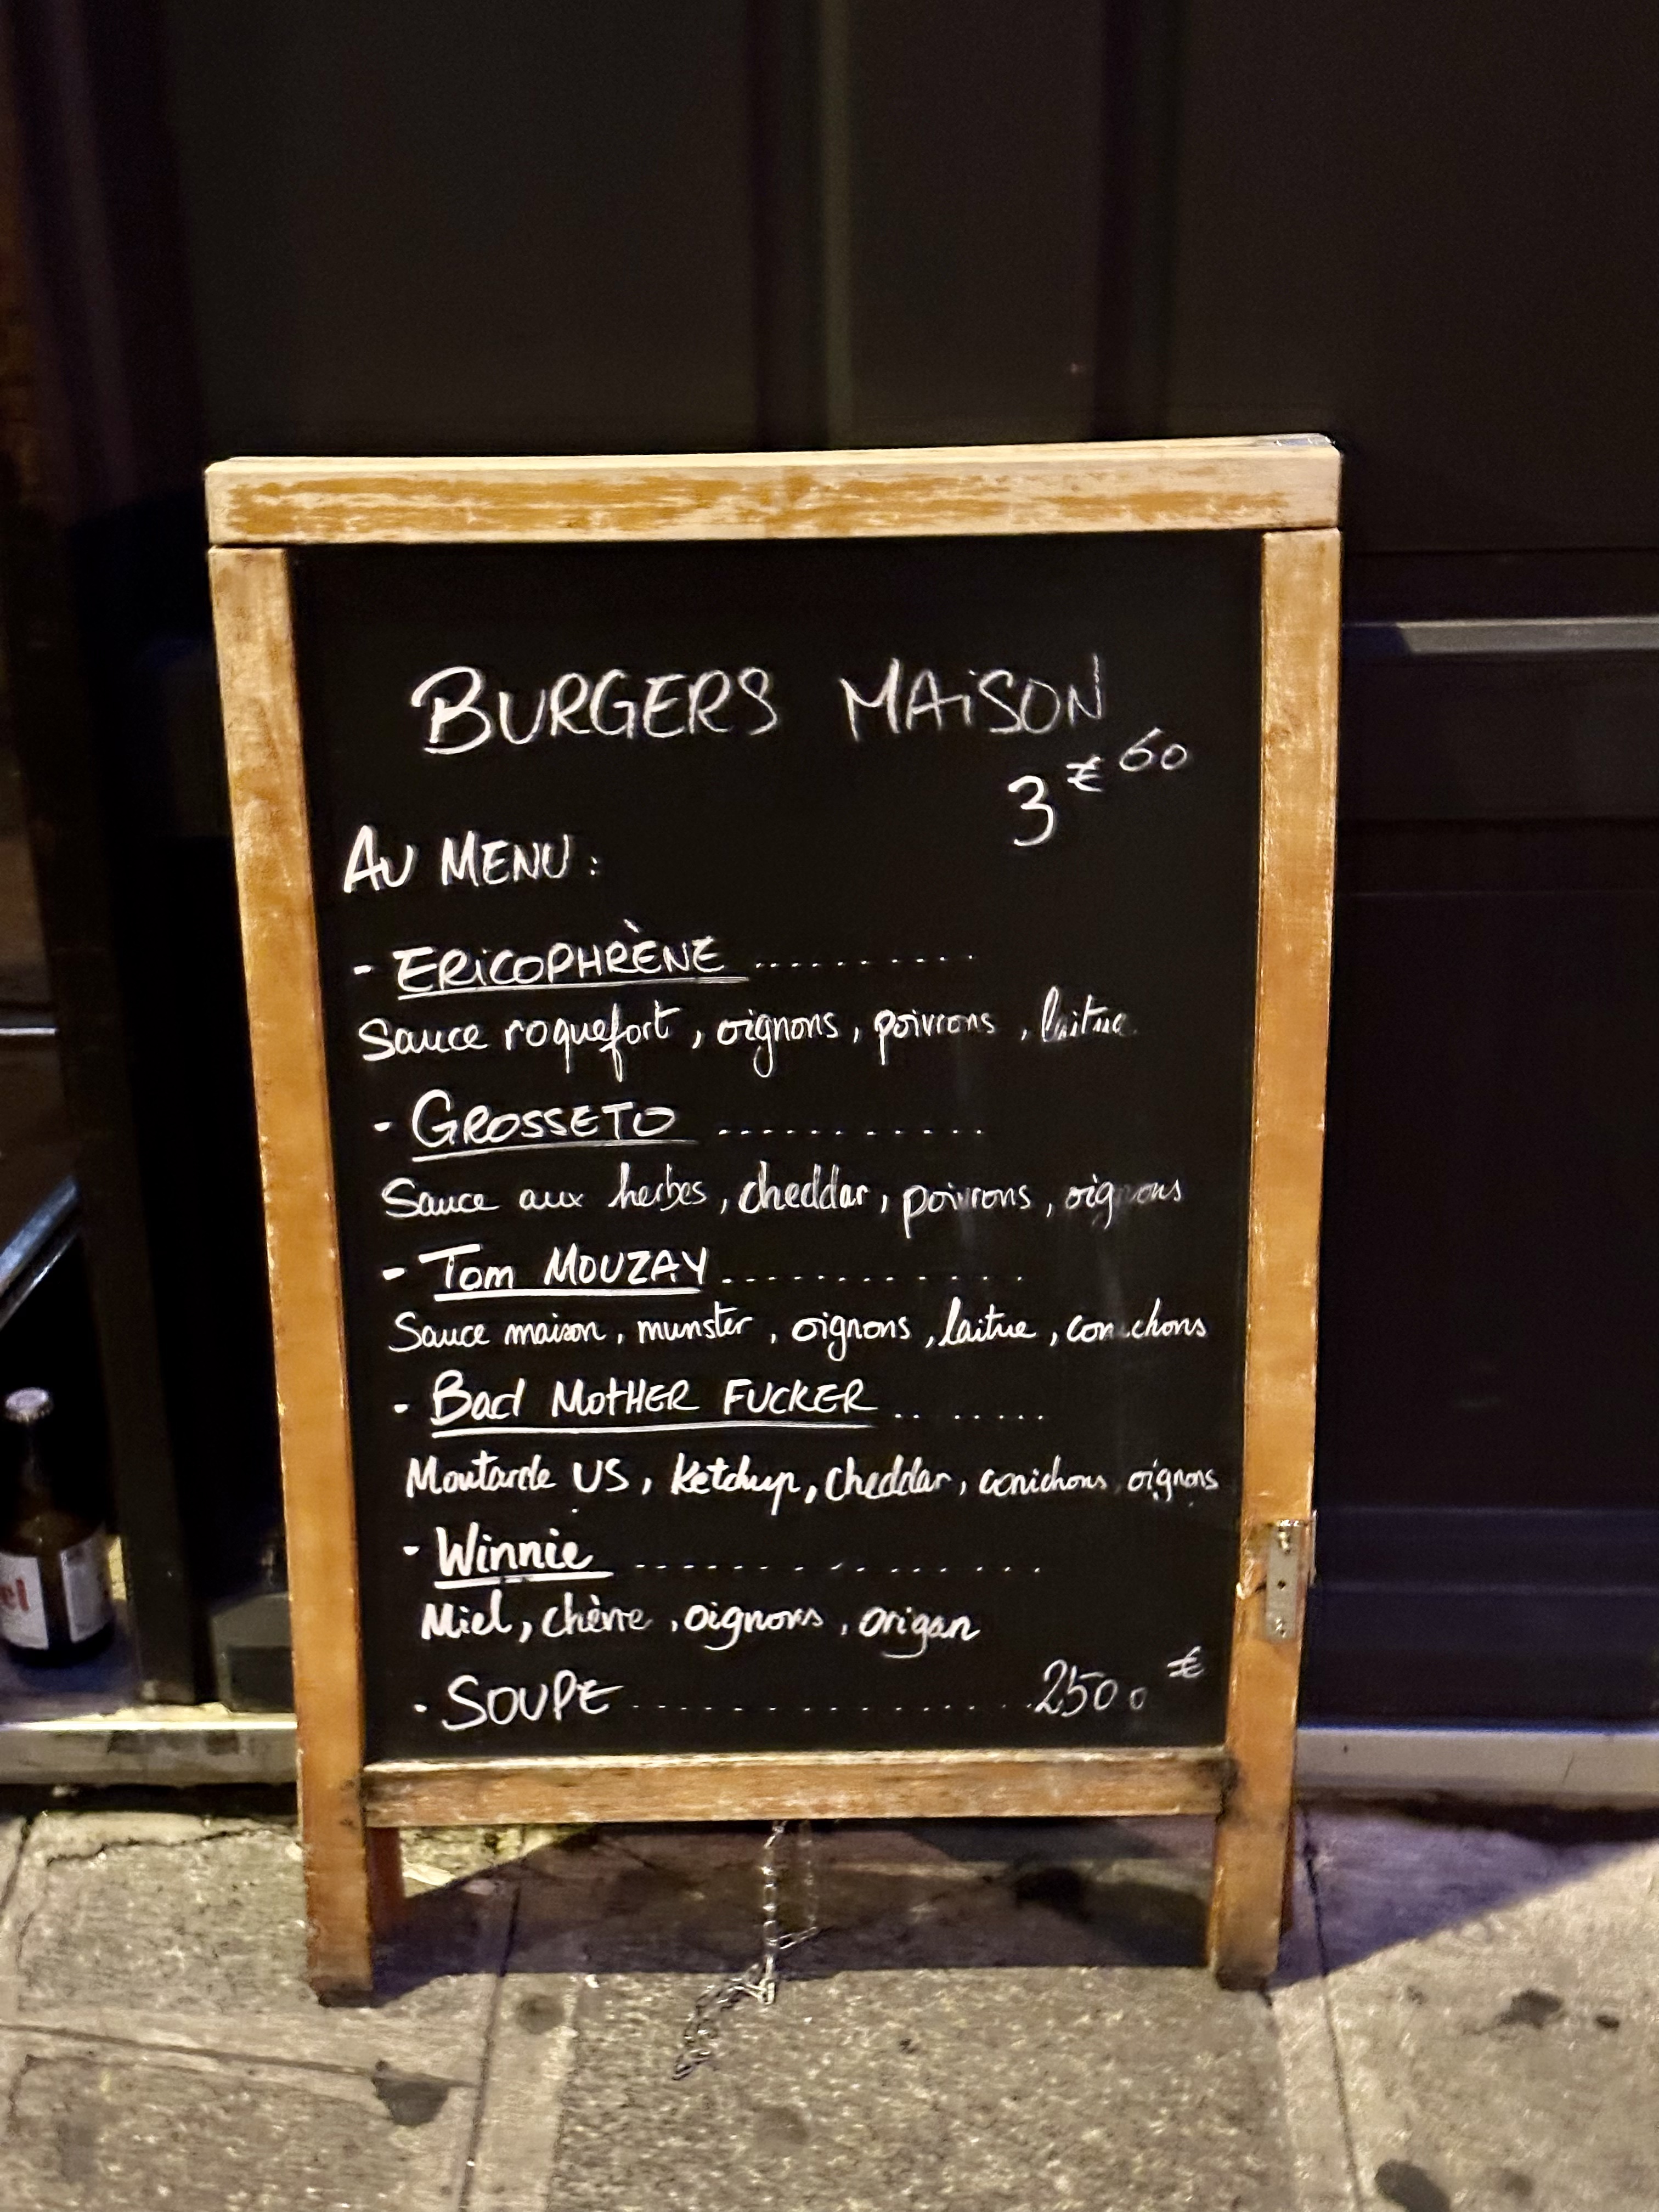 BURGERS MAiSON
3€60
AU MENU :
- ERiCOPHRÈNE ..........
Sauce roquefort, oignons, poivrons, laitue
- GROSSETO ...........
Sauce aux herbes, cheddar, poivrons, oignons
- Tom MOUZAY ............
Sauce maison, munster, oignons, laitue, cornichons
- Bad MOTHER FUCKER .. .....
Moutarde US, Ketchup, cheddar, cornichons, oignons
- Winnie ................
Miel, chèvre, oignons, origan
- SOUPE ................ 2500€
el